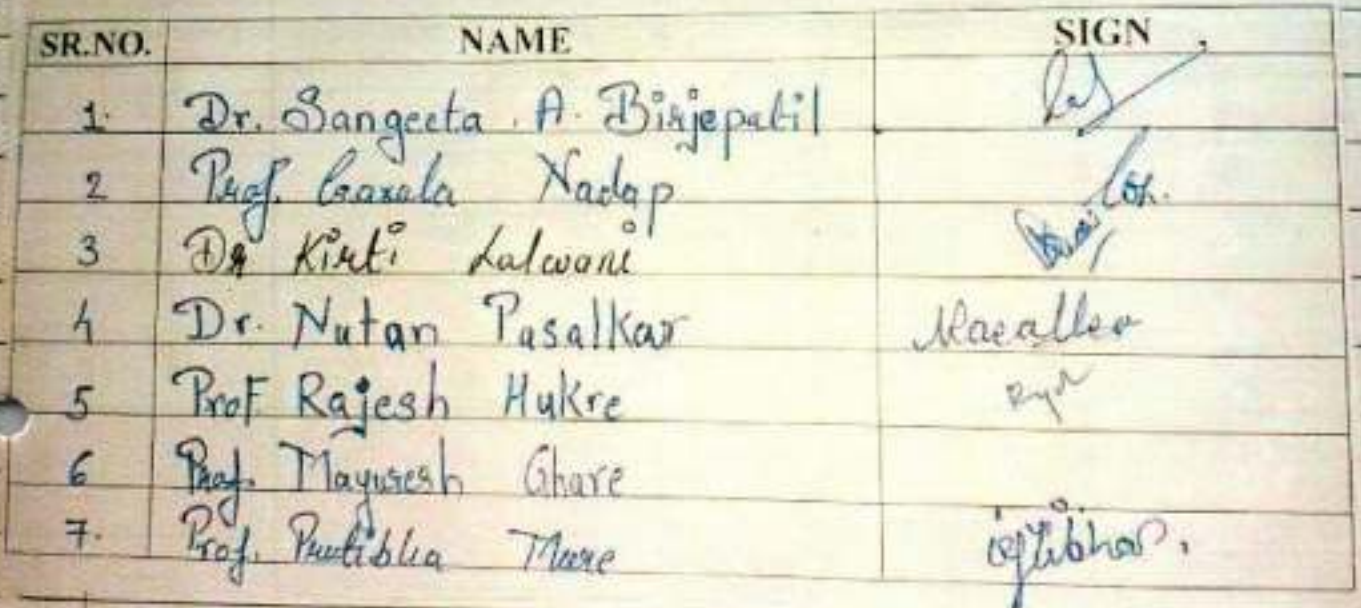 SR.NO. NAME SIGN
1. Dr. Sangeeta . A. Birjepatil
2 Prof. Nadap
3 Dr Kirti Lalwani
4 Dr. Nutan Pasalkar
5 Prof Rajesh Hukre
6 Prof. Mayuresh Ghare
7. Prof. Pratibha More